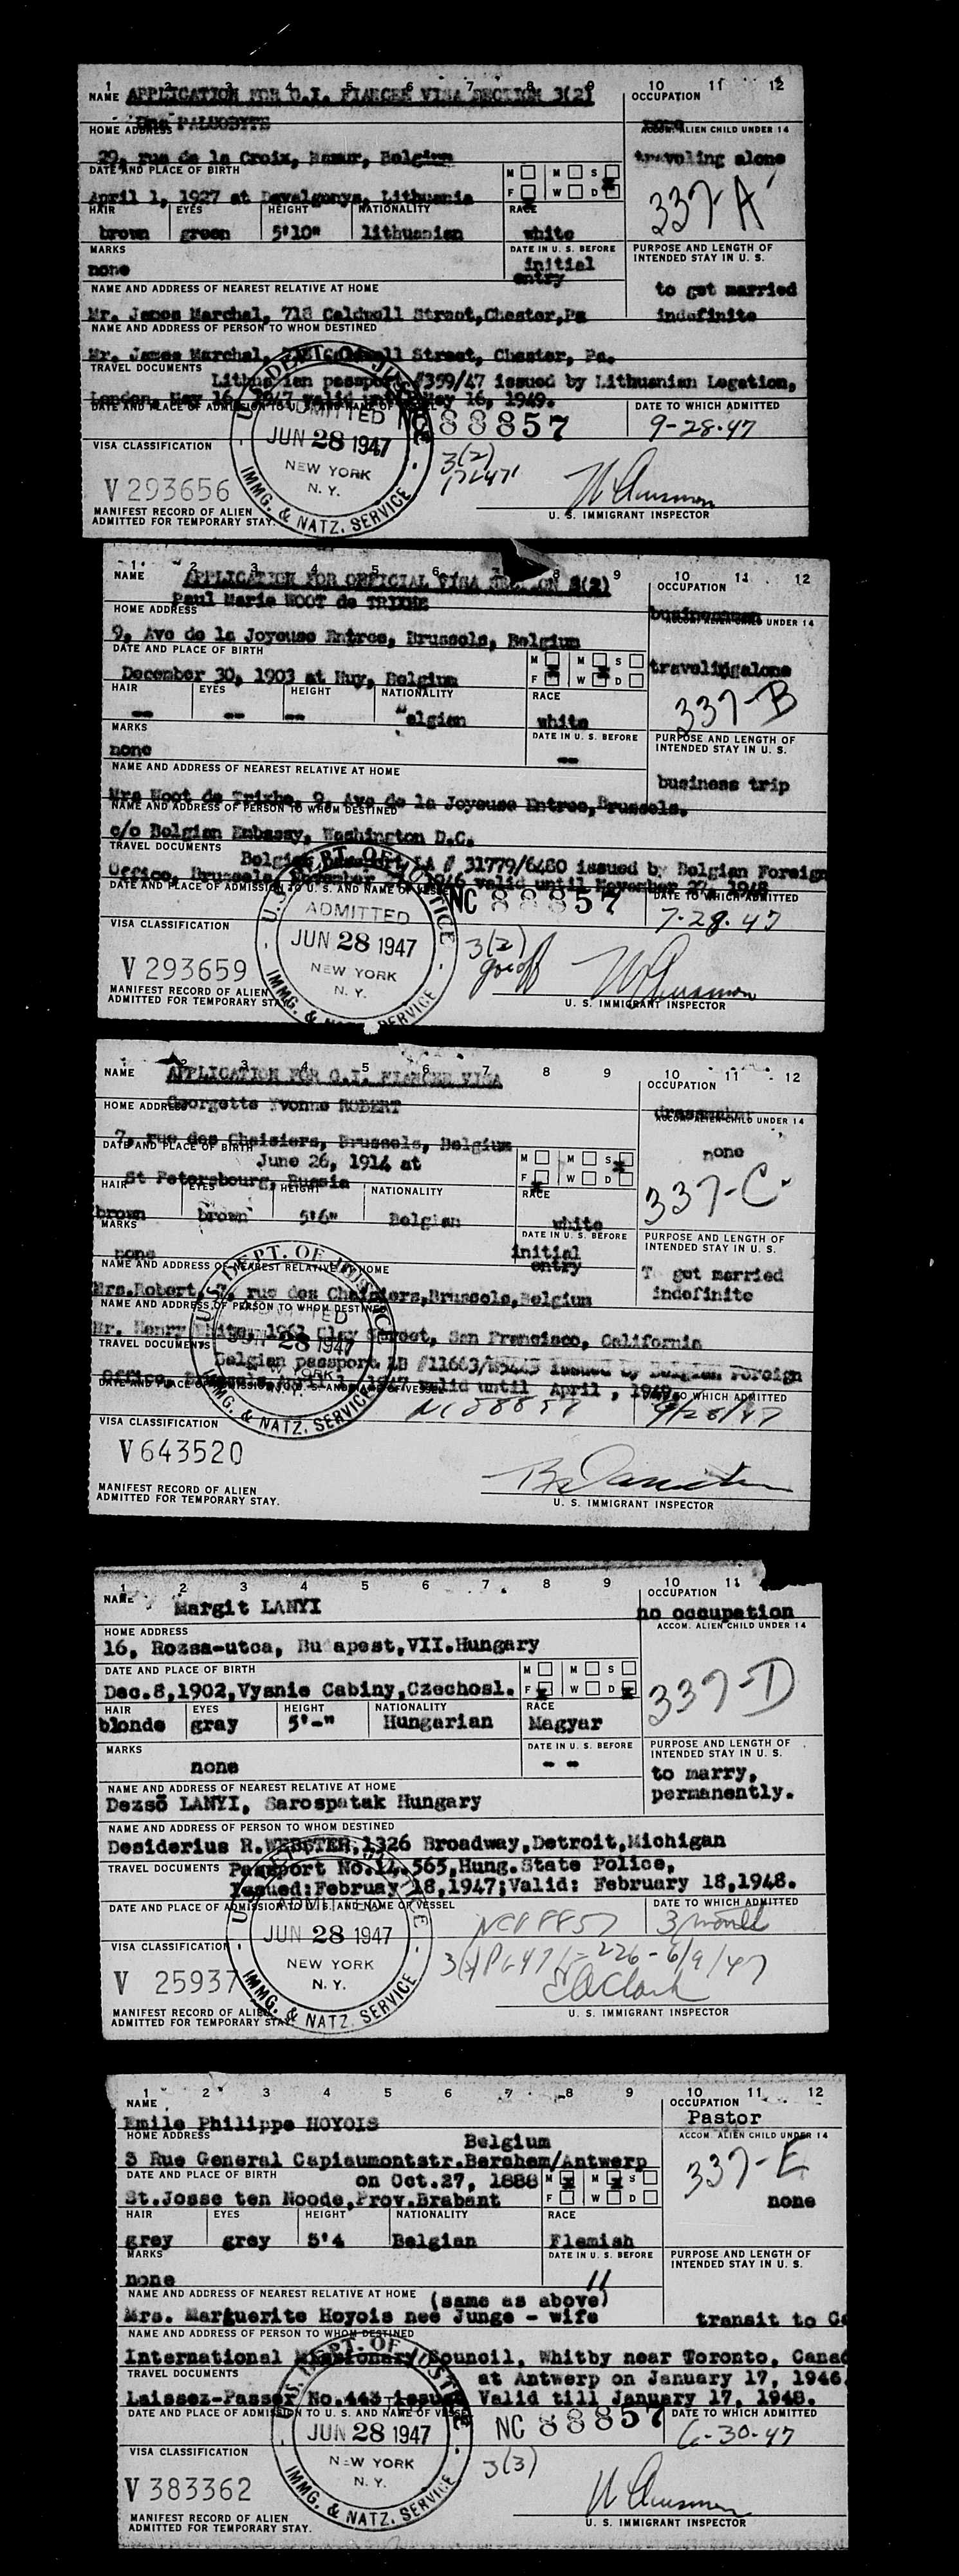 1 2 3 4 5 6 7 8 9 10 11 12
NAME APPLICATION FOR G.I. FIANCEE VISA SECTION 3(2)
OCCUPATION
HOME ADDRESS
ACCOM. ALIEN CHILD UNDER 14
29, rue de la Croix, Namur, Belgium
traveling alone
DATE AND PLACE OF BIRTH
M F M W S D
April 1, 1927 at Davalgonys, Lithuania
337-A
HAIR EYES HEIGHT NATIONALITY RACE
brown green 5'10" lithuanian white
MARKS
DATE IN U. S. BEFORE
PURPOSE AND LENGTH OF INTENDED STAY IN U. S.
none
initial entry
NAME AND ADDRESS OF NEAREST RELATIVE AT HOME
to get married
Mr. James Marchal, 718 Caldwell Street,Chester,Pa
indefinite
NAME AND ADDRESS OF PERSON TO WHOM DESTINED
Mr. James Marchal, Street, Chester, Pa.
TRAVEL DOCUMENTS
Lithuanian passport #359/47 issued by Lithuanian Legation,
London, May 16, 1947 valid until May 16, 1949.
DATE AND PLACE OF ADMISSION TO U. S. AND NAME OF VESSEL
DATE TO WHICH ADMITTED
NC 88857
9-28-47
U.S. DEPT. OF JUSTICE
ADMITTED
JUN 28 1947
NEW YORK
N. Y.
IMMG. & NATZ. SERVICE
VISA CLASSIFICATION
3(2)
V 293656
MANIFEST RECORD OF ALIEN
ADMITTED FOR TEMPORARY STAY.
U. S. IMMIGRANT INSPECTOR
1 2 3 4 5 6 7 8 9 10 11 12
NAME APPLICATION FOR OFFICIAL VISA SECTION 3(2)
OCCUPATION
Paul Marie WOOT de TRIXHE
HOME ADDRESS
businessman
ACCOM. ALIEN CHILD UNDER 14
9, Ave de la Joyeuse Entree, Brussels, Belgium
DATE AND PLACE OF BIRTH
M F M W S D
travelingalone
December 30, 1903 at Huy, Belgium
337-B
HAIR EYES HEIGHT NATIONALITY RACE
-- -- -- Belgian white
MARKS
DATE IN U. S. BEFORE
PURPOSE AND LENGTH OF INTENDED STAY IN U. S.
none
--
NAME AND ADDRESS OF NEAREST RELATIVE AT HOME
business trip
Mrs Woot de Trixhe, 9, Ave de la Joyeuse Entree,Brussels.
NAME AND ADDRESS OF PERSON TO WHOM DESTINED
c/o Belgian Embassy, Washington D.C.
TRAVEL DOCUMENTS
Belgian Passport LA # 31779/6480 issued by Belgian Foreign
Office, Brussels, November 27, 1946 valid until November 27, 1948
DATE AND PLACE OF ADMISSION TO U. S. AND NAME OF VESSEL
DATE TO WHICH ADMITTED
NC 88857
7-28-47
U.S. DEPT. OF JUSTICE
ADMITTED
JUN 28 1947
NEW YORK
N. Y.
IMMG. & NATZ. SERVICE
VISA CLASSIFICATION
3(2)
V 293659
MANIFEST RECORD OF ALIEN
ADMITTED FOR TEMPORARY STAY.
U. S. IMMIGRANT INSPECTOR
2 3 4 5 6 7 8 9 10 11 12
NAME APPLICATION FOR G.I. FIANCEE VISA
OCCUPATION
HOME ADDRESS
Georgette Yvonne ROBERT
dressmaker
ACCOM. ALIEN CHILD UNDER 14
7, rue des Chaisiers, Brussels, Belgium
DATE AND PLACE OF BIRTH
none
June 26, 1914 at
M F M W S D
St Petersbourg, Russia
337-C
HAIR EYES HEIGHT NATIONALITY RACE
brown brown 5'6" Belgian white
MARKS
DATE IN U. S. BEFORE
PURPOSE AND LENGTH OF INTENDED STAY IN U. S.
none
initial entry
NAME AND ADDRESS OF NEAREST RELATIVE AT HOME
To get married
indefinite
Mrs.Robert, 7, rue des Chaisiers,Brussels,Belgium
NAME AND ADDRESS OF PERSON TO WHOM DESTINED
Mr. Henry White, 1961 Clay Street, San Francisco, California
TRAVEL DOCUMENTS
Belgian passport issued by Belgian Foreign
Office, Brussels, April 1947 valid until April , 1949.
DATE AND PLACE OF ADMISSION TO U. S. AND NAME OF VESSEL
DATE TO WHICH ADMITTED
NC 88857
9/28/47
U.S. DEPT. OF JUSTICE
ADMITTED
JUN 28 1947
NEW YORK
IMMG. & NATZ. SERVICE
VISA CLASSIFICATION
V 643520
MANIFEST RECORD OF ALIEN
ADMITTED FOR TEMPORARY STAY.
U. S. IMMIGRANT INSPECTOR
1 2 3 4 5 6 7 8 9 10 11
NAME Margit LANYI
OCCUPATION
no occupation
HOME ADDRESS
ACCOM. ALIEN CHILD UNDER 14
16, Rozsa-utca, Budapest,VII.Hungary
DATE AND PLACE OF BIRTH
M F M W S D
337-D
Dec.8,1902,Vysnie Cabiny,Czechosl.
HAIR EYES HEIGHT NATIONALITY RACE
blonde gray 5'-" Hungarian Magyar
MARKS
DATE IN U. S. BEFORE
PURPOSE AND LENGTH OF INTENDED STAY IN U. S.
none
- -
to marry,
permanently.
NAME AND ADDRESS OF NEAREST RELATIVE AT HOME
Dezső LANYI, Sarospatak Hungary
NAME AND ADDRESS OF PERSON TO WHOM DESTINED
Desiderius R.WEBSTER,1326 Broadway,Detroit,Michigan
TRAVEL DOCUMENTS Passport No.14.565,Hung.State Police,
Issued:Februay 18,1947;Valid: February 18,1948.
DATE AND PLACE OF ADMISSION TO U. S. AND NAME OF VESSEL
DATE TO WHICH ADMITTED
NC88857
3 months
U.S. DEPT. OF JUSTICE
ADMITTED
JUN 28 1947
NEW YORK
N. Y.
IMMG. & NATZ. SERVICE
VISA CLASSIFICATION
V 25937
MANIFEST RECORD OF ALIEN
ADMITTED FOR TEMPORARY STAY.
U. S. IMMIGRANT INSPECTOR
1 2 3 4 5 6 7 8 9 10 11 12
NAME
OCCUPATION
Emile Philippe HOYOIS
Pastor
HOME ADDRESS
Belgium
ACCOM. ALIEN CHILD UNDER 14
3 Rue General Capiaumontstr.Berchem/Antwerp
337-E
DATE AND PLACE OF BIRTH
on Oct.27, 1888
M F M W S D
St.Josse ten Noode,Prov.Brabant
none
HAIR EYES HEIGHT NATIONALITY RACE
grey grey 5'4 Belgian Flemish
MARKS
DATE IN U. S. BEFORE
PURPOSE AND LENGTH OF INTENDED STAY IN U. S.
none
NAME AND ADDRESS OF NEAREST RELATIVE AT HOME
(same as above)
Mrs. Marguerite Hoyois nee Junge - wife
transit to Ca
NAME AND ADDRESS OF PERSON TO WHOM DESTINED
International Missionary Council, Whitby near Toronto, Canad
TRAVEL DOCUMENTS
at Antwerp on January 17, 1946
Laissez-Passer No.443-issued Valid till January 17, 1948.
DATE AND PLACE OF ADMISSION TO U. S. AND NAME OF VESSEL
DATE TO WHICH ADMITTED
NC 88857
6-30-47
U.S. DEPT. OF JUSTICE
JUN 28 1947
NEW YORK
N. Y.
IMMG. & NATZ. SERVICE
VISA CLASSIFICATION
3(3)
V 383362
MANIFEST RECORD OF ALIEN
ADMITTED FOR TEMPORARY STAY.
U. S. IMMIGRANT INSPECTOR